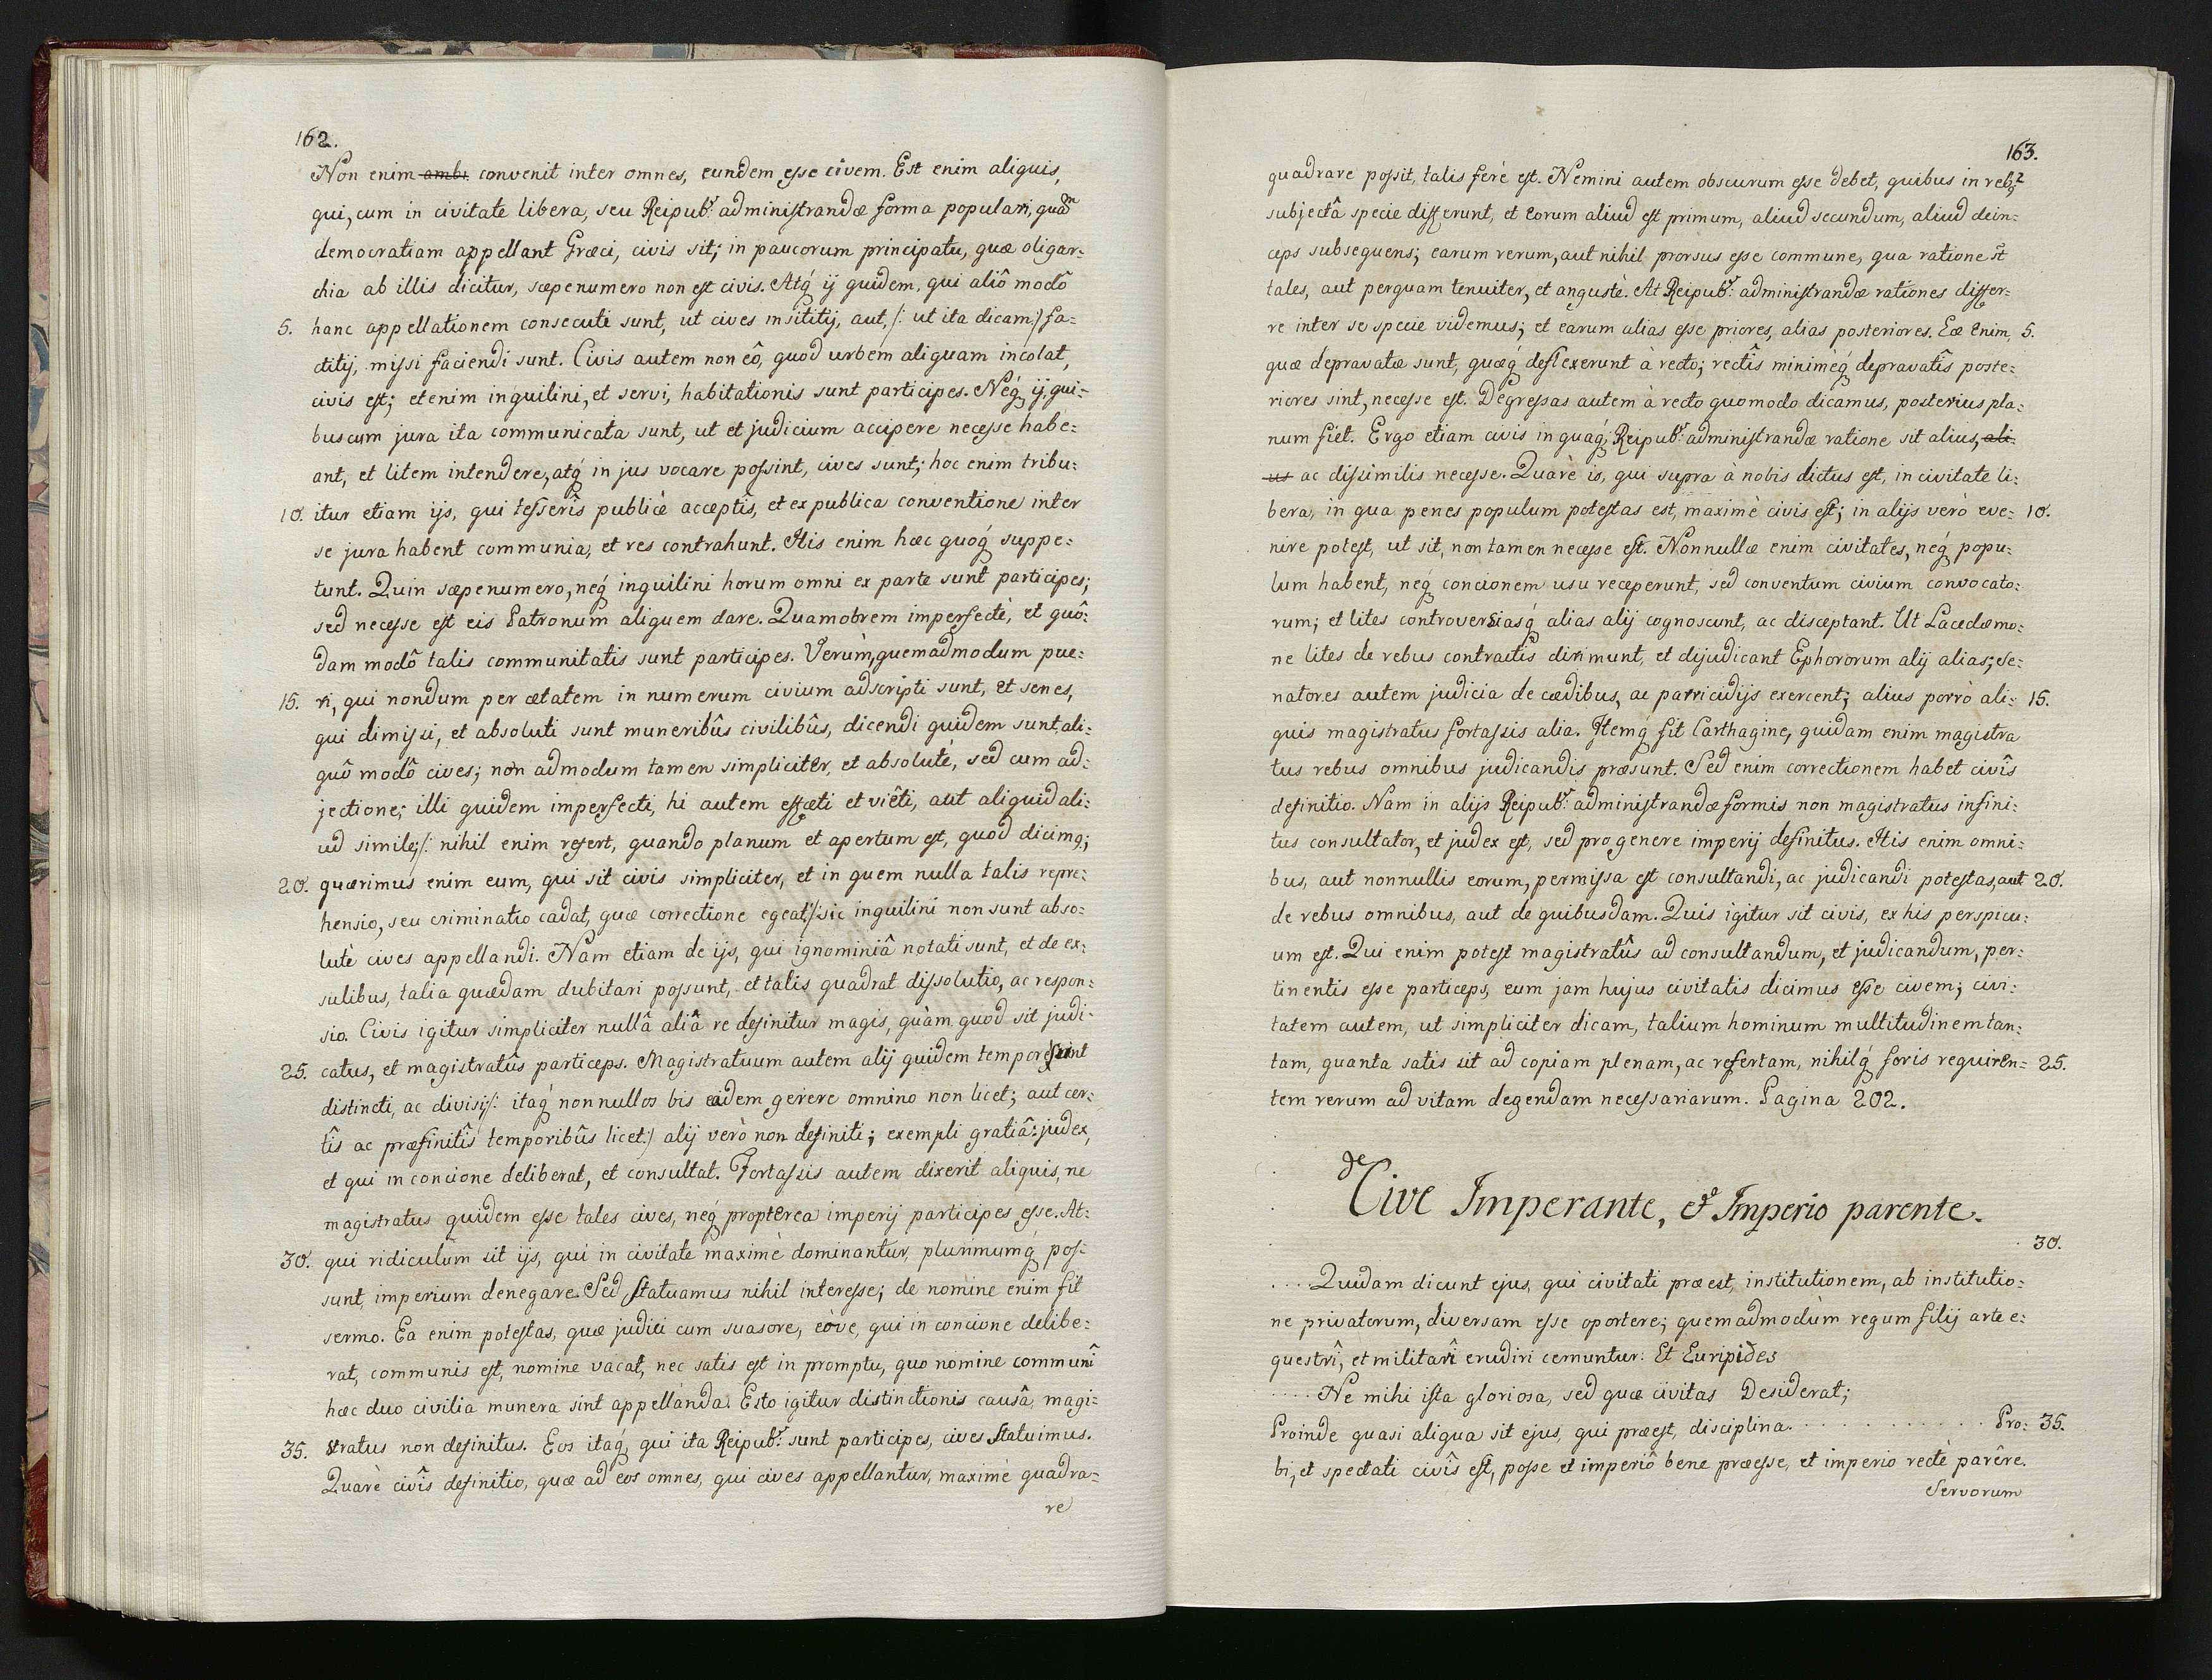 162.
Non enim ambi convenit inter omnes, eundem esse civem. Est enim aliquis,
qui, cum in civitate libera, seu Reipub: administrandæ forma populari, quam
democratiam appellant Græci, civis sit; in paucorum principatu, quæ oligar=
chia ab illis dicitur, sæpenumero non est civis. Atq́ ij quidem, qui aliô modô
5. hanc appellationem consecuti sunt, ut cives insititij, aut, /: ut ita dicam:/ fa=
ctitij, missi faciendi sunt. Civis autem non eô, quod urbem aliquam incolat,
civis est; etenim inquilini, et servi, habitationis sunt participes. Neq́ ij, qui=
buscum jura ita communicata sunt, ut et judicium accipere necesse habe=
ant, et litem intendere, atq́ in jus vocare possint, cives sunt; hoc enim tribu=
10. itur etiam ijs, qui tesserîs publicè acceptîs, et ex publica conventione inter
se jura habent communia, et res contrahunt. His enim hæc quoq́ suppe=
tunt. Quin sæpenumero, neq́ inquilini horum omni ex parte sunt participes;
sed necesse est eis Patronum aliquem dare. Quamobrem imperfectè, et quô=
dam modô talis communitatis sunt participes. Verùm, quemadmodum pue=
15. ri, qui nondum per ætatem in numerum civium adscripti sunt, et senes,
qui dimissi, et absoluti sunt muneribûs civilibûs, dicendi quidem sunt ali=
quô modô cives; non admodum tamen simpliciter, et absolutè, sed cum ad=
jectione; illi quidem imperfecti, hi autem effæti et viêti, aut aliquid ali=
ud simile; /: nihil enim refert, quando planum et apertum est, quod dicimq;
20. quærimus enim eum, qui sit civis simpliciter, et in quem nulla talis repre=
hensio, seu criminatio cadat, quæ correctione egeat:/ sic inquilini non sunt abso=
lutè cives appellandi. Nam etiam de ijs, qui ignominiâ notati sunt, et de ex=
sulibus, talia quædam dubitari possunt, et talis quadrat dissolutio, ac respon=
sio. Civis igitur simpliciter nullâ aliâ re definitur magis, quàm quod sit judi=
25. catus, et magistratûs particeps. Magistratuum autem alij quidem tempore sunt
distincti, ac divisi; /: itaq́ nonnullos bis eadem gerere omnino non licet; aut cer=
tîs ac præfinitîs temporibûs licet:/ alij verò non definiti; exempli gratiâ: judex,
et qui in concione deliberat, et consultat. Fortassis autem dixerit aliquis, ne
magistratus quidem esse tales cives, neq́ propterea imperij participes esse. At=
30. qui ridiculum sit ijs, qui in civitate maximè dominantur, plurimumq́ pos=
sunt, imperium denegare. Sed statuamus nihil interesse; de nomine enim fit
sermo. Ea enim potestas, quæ judici cum suasore, eòve, qui in concione delibe=
rat, communis est, nomine vacat, nec satis est in promptu, quo nomine communi
hæc duo civilia munera sint appellanda. Esto igitur distinctionis causâ, magi=
35. stratus non definitus. Eos itaq́, qui ita Reipub: sunt participes, cives statuimus.
Quarè civîs definitio, quæ ad eos omnes, qui cives appellantur, maximè quadra=
re
163.
quadrare possit, talis ferè est. Nemini autem obscurum esse debet, quibus in rebq
subjectâ specie differunt, et eorum aliud est primum, aliud secundum, aliud dein=
ceps subsequens; earum rerum, aut nihil prorsus esse commune, qua ratione st
tales, aut perquam tenuiter, et angustè. At Reipub: administrandæ rationes differ=
re inter se specie videmus; et earum alias esse priores, alias posteriores. Eæ enim, 5.
quæ depravatæ sunt, quæq́ deflexerunt à recto; rectîs minimèq́ depravatîs poste=
riores sint, necesse est. Degressas autem à recto quomodo dicamus, posterius pla=
num fiet. Ergo etiam civis in quaq́ Reipub: administrandæ ratione sit alius, ali=
us ac dissimilis necesse. Quarè is, qui supra à nobis dictus est, in civitate li=
bera, in qua penes populum potestas est, maximè civis est; in alijs verò eve= 10.
nire potest, ut sit, non tamen necesse est. Nonnullæ enim civitates, neq́ popu=
lum habent, neq́ concionem usu receperunt, sed conventum civium convocato=
rum; et lites controversiasq́ alias alij cognoscunt, ac disceptant. Ut Lacedæmo=
ne lites de rebus contractis dirimunt, et dijudicant Ephororum alij alias; se=
natores autem judicia de cædibus, ac parricidijs exercent; alius porrò ali= 15.
quis magistratus fortassis alia. Itemq́ fit Carthagine, quidam enim magistra
tus rebus omnibus judicandis præsunt. Sed enim correctionem habet civîs
definitio. Nam in alijs Reipub: administrandæ formis non magistratus infini=
tus consultator, et judex est, sed pro genere imperij definitus. His enim omni=
bus, aut nonnullis eorum, permissa est consultandi, ac judicandi potestas, aut 20.
de rebus omnibus, aut de quibusdam. Quis igitur sit civis, ex his perspicu=
um est. Qui enim potest magistratûs ad consultandum, et judicandum, per=
tinentis esse particeps, eum jam hujus civitatis dicimus esse civem; civi=
tatem autem, ut simpliciter dicam, talium hominum multitudinem tan=
tam, quanta satis sit ad copiam plenam, ac refertam, nihilq́ foris requiren= 25.
tem rerum ad vitam degendam necessariarum. Pagina 202.
de Cive Imperante, et Imperio parente.
30.
.... Quidam dicunt ejus, qui civitati præest, institutionem, ab institutio=
ne privatorum, diversam esse oportere; quemadmodùm regum filij arte e=
questrî, et militarî erudiri cernuntur: Et Euripides
..... Ne mihi ista gloriosa, sed quæ civitas desiderat;
Proinde quasi aliqua sit ejus, qui præest, disciplina. . . . . . . . . . . . Pro= 35.
bi, et spectati civîs est, posse et imperiô bene præesse, et imperio rectè parêre.
Servorum